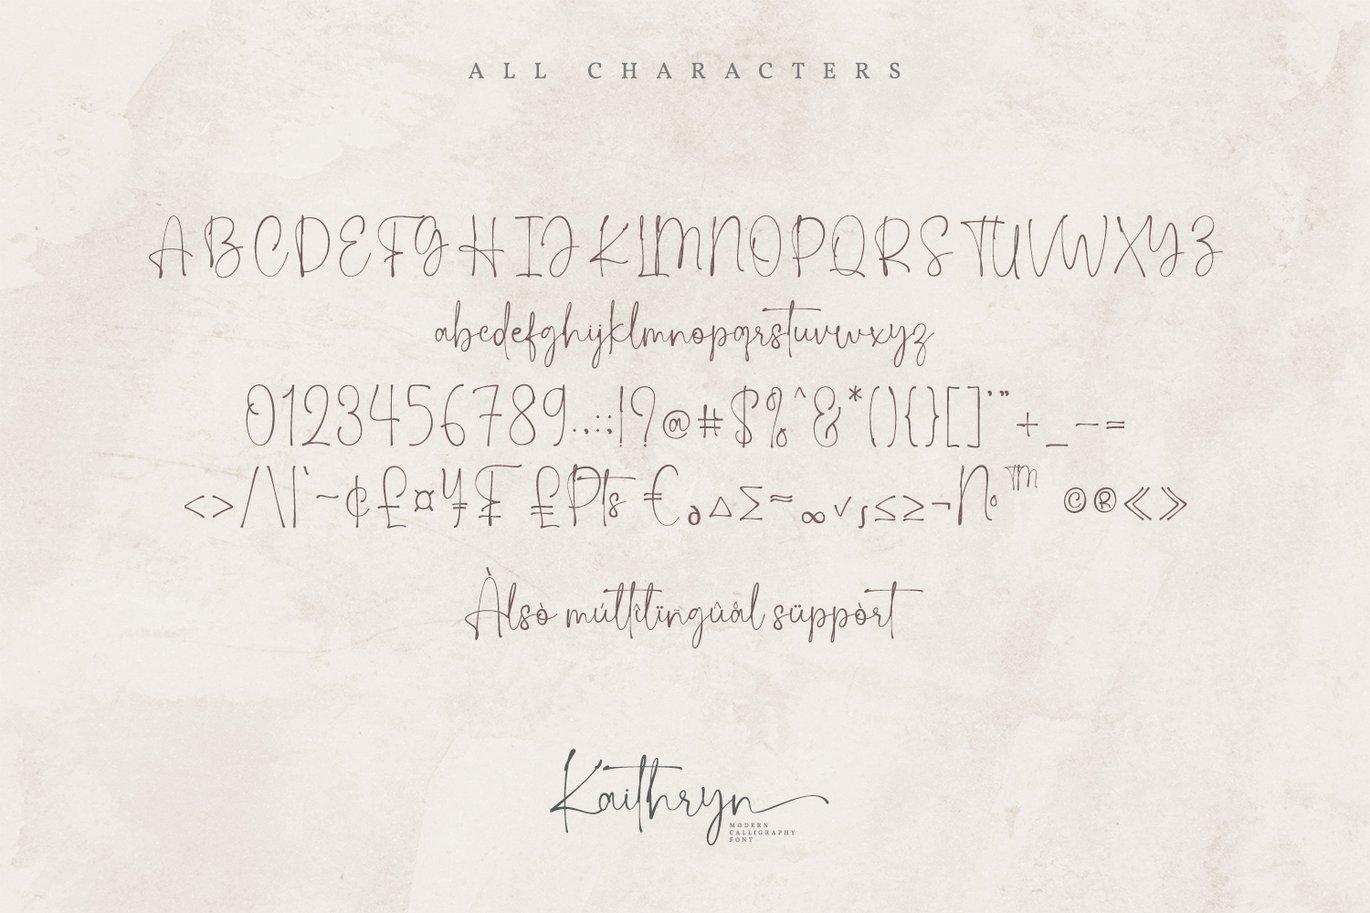 ALL CHARACTERS
ABCDEFGHIJKLMNOPQRSTUVWXYZ
abcdefghijklmnopqrstuvwxyz
0123456789.,:;!?@#$%^&*(){}[]'"+_-=
<>/\|`~¢£¤¥₣ ₤₧€∂∆∑≈∞√∫≤≥¬№™ ©®«»
Àlsò múltîlïngûål süppòrt
Kaithryn
MODERN
CALLIGRAPHY
FONT